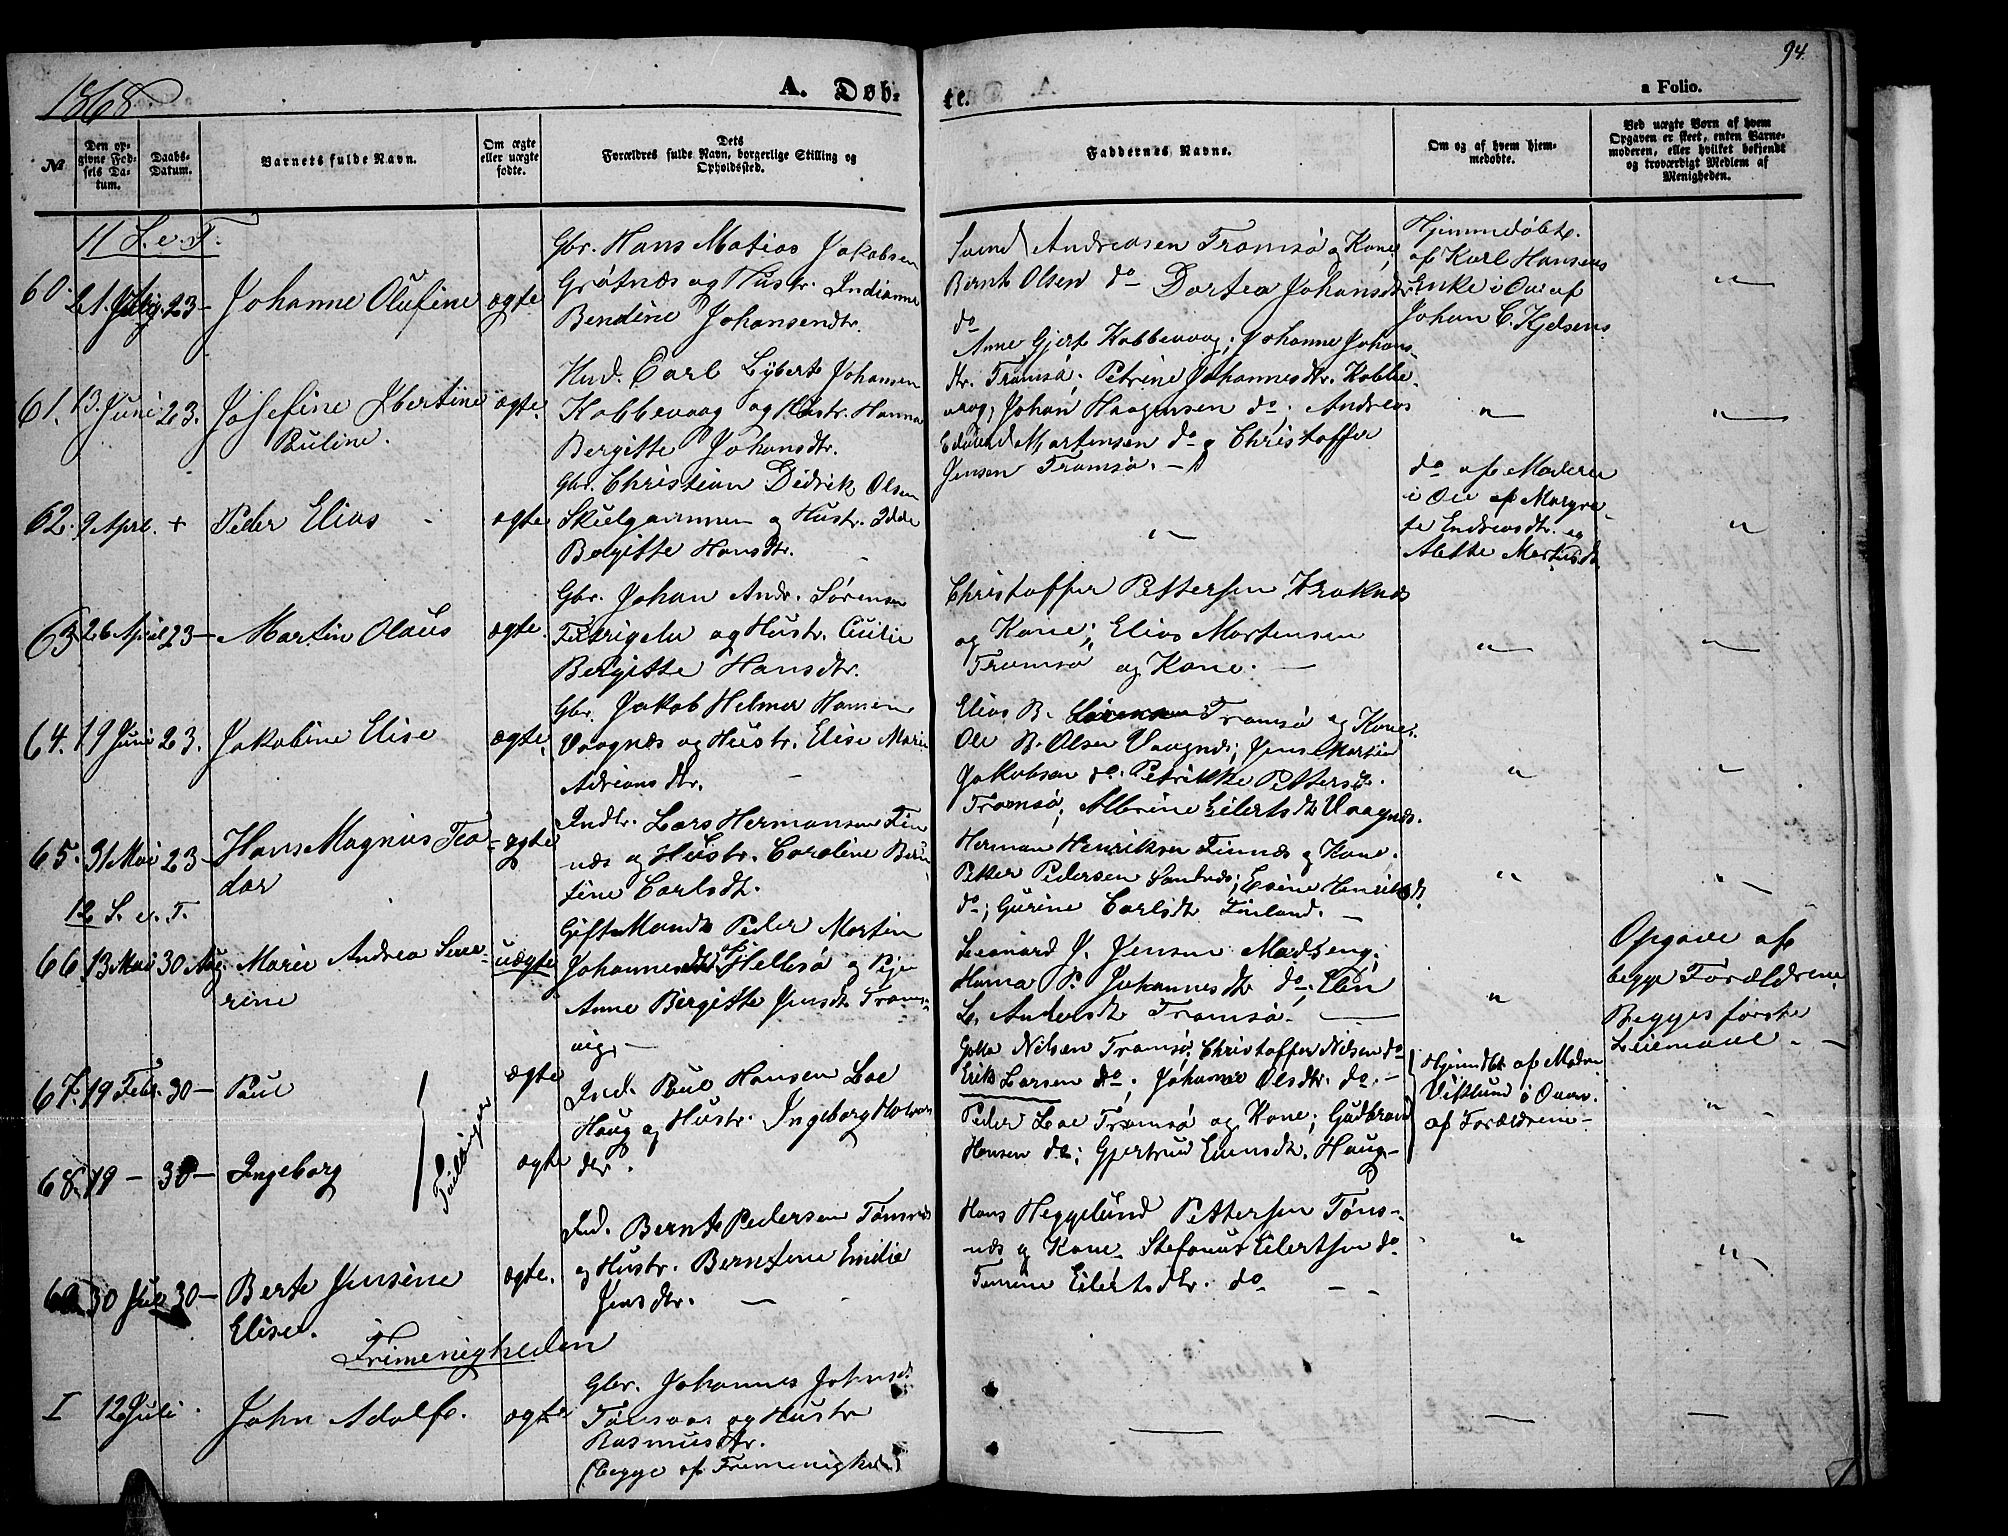 94.
1868
A. Døb-
te.
a Folio.
№
Den op-
givne Fød-
sels Da-
tum.
Daabs-
Datum.
Barnets fulde Navn.
Om ægte
eller uægte
fødte.
Dets
Forældres fulde Navn, borgerlige Stilling og
Opholdssted.
Faddernes Navne.
Om og af hvem hjem-
medøbte.
Ved uægte Børn af hvem
Opgaven er skeet, enten Barne-
moderen, eller hvilket bekjendt
og troværdigt Medlem af
Menigheden.
11 S. e. T.
60. 21. 23- Johanne Olufine ægte
Gbr. Hans Matias Jakobsen
Grøtnæs og Hustr. Indianna
Bendine Johansendtr.
Svend Andreasen Tromsø og Kone,
Bernt Olsen do Dortea Johansdtr
do
Hjemmedøbt.
af Karl Hansens
Enke i Ove af
Johan C. Kjelsens
"
61. 13. Juni 23. Josefine Ibertine
Pauline. ægte.
Hud. Carl Lyberts Johansen
Kobbevaag og Hustr. Hanna
Bergitte Johansdtr.
Anne Gjert Kobbevaag; Johanne Johans-
dtr. Tromsø; Petrine Johannesdtr. Kobbe-
vaag; Johan Haagensen do; Andreas
Edvard Mortensen do og Christoffer
Jensen Tromsø. -
"
"
62. 9 Apr. + Peder Elias ægte
Gbr. Christian Didrik Olsen
Skulgammen og Hustr. Idde
Bergitte Hansdtr.
"
do af Moderen
i Ove af Margre-
te Endreasdtr. og
Alette
"
63 26 April 23- Martin Olaus ægte.
Gbr. Johan Andr. Sørensen
og Hustr.
Bergitte Hansdtr.
Christoffer Pettersen Kraknæs
og Kone; Elias Mortensen
Tromsø og Kone. -
"
"
64. 19 Juni 23. Jakobine Elise ægte.
Gbr. Jakob Helmer Hansen
Vaagnæs og Hustr. Elise Marie
Adriansdtr.
Elias B. Tromsø og Kone.
Ole B. Olsen Vaagnæs; Jens Martin
Jakobsen do. Petrikke Pettersdtr.
Tromsø; Albrine Eilertsdtr Vaagnæs.
"
"
65. 31 Mai 23- Hans Magnus Tea-
dor ægte
Indtr. Lars Hermansen Fin-
næs og Hustr. Caroline Bern-
tine Carlsdtr.
Herman Henriksen Finnæs og Kone.
Petter Pedersen
do; Gurine Carlsdtr Finland. -
"
"
12 S. e. T.
66. 13 Mai 30 Aug. Marie Andrea Seve-
rine uægte
Gift Mand Peder Martin
Johannes Hellesø og Pige
Anne Bergitte Jensdtr Troms-
vig. -
Leonard J. Jensen Madseng;
Hanna P. Johannesdtr do; Elen
L. Andersdtr Tromsø. -
"
Opgave af
begge Forældrene.
Begges første
Leiermaal. -
67. 19 Febr. 30- Paul ægte
Tvillinger
Ind. Paul Hansen Loe
Haug og Hustr. Ingeborg
dtr.
Nilsen Tromsø, Christoffer Nilsen do
Erik Larsen do; Johanne Olsdtr. do. -
Peder Loe Tromsø og Kone; Gudbrand
Hansen do; Gjertrud Evensdtr. Haug-
Hjemdbt. af Madm
Viklund i Overv.
af Forældrene-
"
68. 19 - 30- Ingeborg ægte
69. 30 Juli 30- Berte Jensine
Elise. ægte.
Ind. Bernt Pedersen Tønsnæs
og Hustr. Berntine Emilie
Jensdtr. -
Hans Heggelund Pettersen Tøns-
næs og Kone. Stefanus Eilertsen do
Eilertsdtr. do -
"
"
Frimenigheden
I 12 Juli. John Adolf. ægte
Gbr. Johannes
og Hustr
Rasmusdtr.
(begge af Frimenigheden)